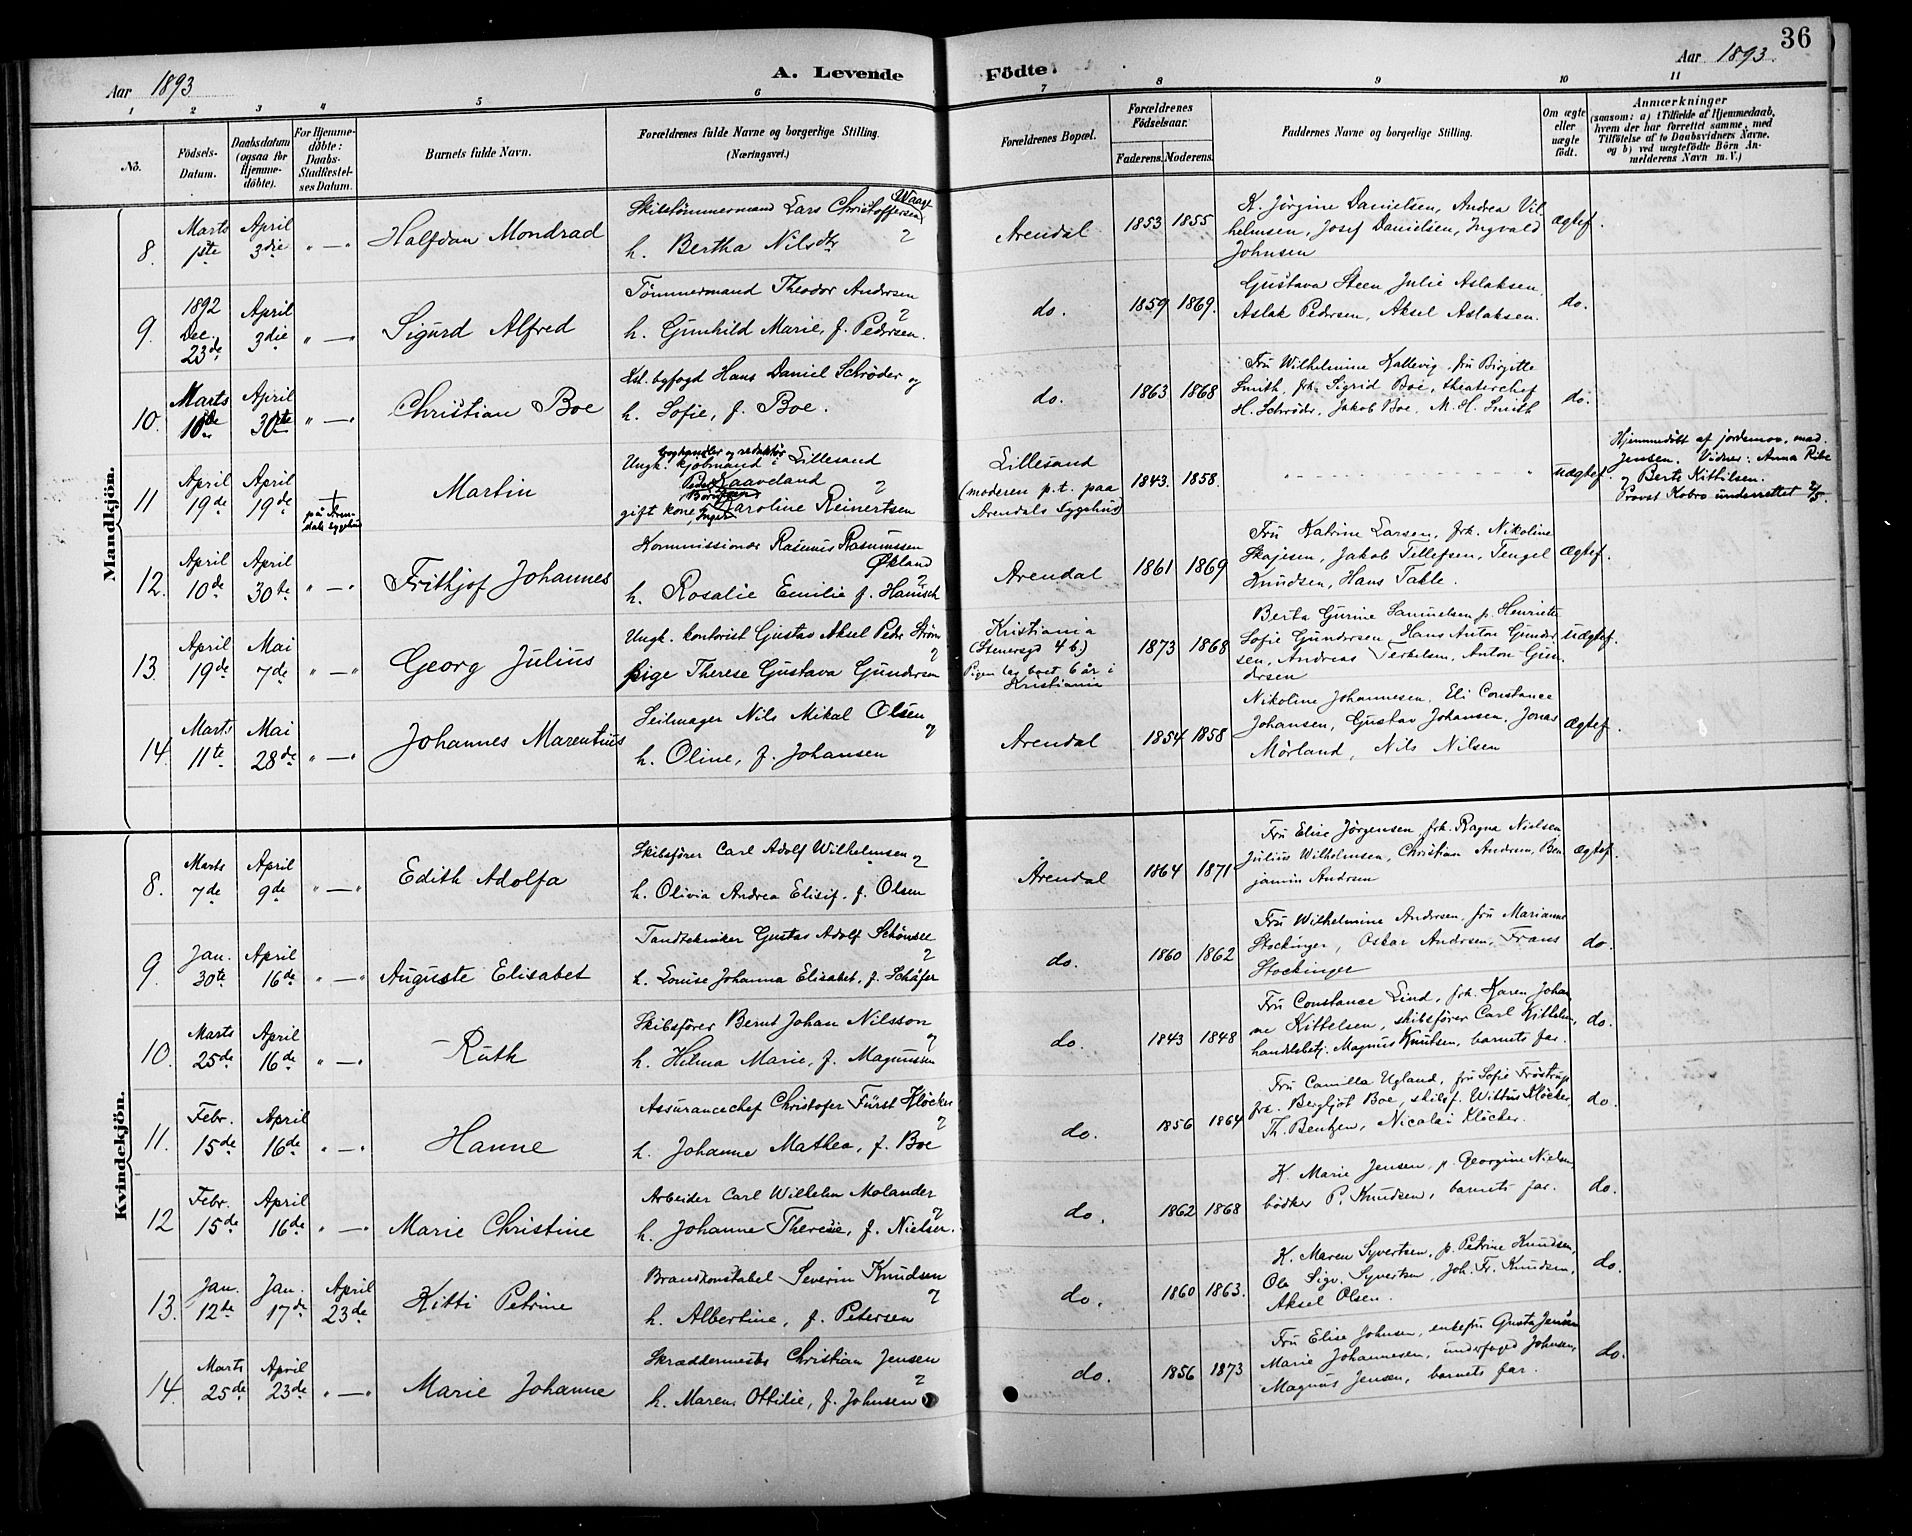 36
Aar 1893
A. Levende
Födte.
Aar 1893.
1 2 3 4 5 6 7 8 9 10 11
No.
Födsels-
Datum.
Daabsdatum
(ogsaa for
Hjemme-
döbte).
For Hjemme-
döbte:
Daabs-
Stadfæstel-
ses Datum.
Barnets fulde Navn.
Forældrenes fulde Navne og borgerlige Stilling.
(Næringsvei.)
Forældrenes Bopæl.
Forældrenes
Födselsaar.
Faderens. Moderens.
Faddernes Navne og borgerlige Stilling.
Om ægte
eller
uægte
födt.
Anmærkninger
(saasom: a) i Tilfælde af Hjemmedaab,
hvem der har forrettet samme, med
Tilföielse af to Daabsvidners Navne,
og b) ved uægtefödte Börn An-
melderens Navn m. V.)
Mandkjön.
8. Marts 1ste April 3die " — " Halfdan Mondrad
Skibstømmermand Lars Christoffersen Waage
h. Bertha Nilsdtr
Arendal 1853 1855
K. Jørgine Danielsen, Andrea Vil-
helmsen, Josef Danielsen, Ingvald
Johnsen
Ægtef.
9. 1892 Dec. 23de April 3die " — " Sigurd Alfred
Tømmermand Theodor Andersen
h. Gunhild Marie, f. Pedersen.
do. 1859 1869.
Gustava Steen, Julie Aslaksen
Aslak Pedersen, Aksel Aslaksen.
do.
10. Marts 10de April 30te " — " Christian Boe
Kst. byfogd Hans Daniel Schrøder og
h. Sofie, f. Boe.
do. 1863 1868
Fru Wilhelmine Kallevig, fru Birgitte
Smith, frk. Sigrid Boe, theaterchef
H. Schrøder, Jakob Boe, M. H. Smith
do.
11 April 19de April 19de + på Aren-
dals sygehus
Martin
boghandler og redaktør
Ungk. kjøbmand i Lillesand
Peder Kaaveland
gift kone Inger Karoline Reinertsen
Lillesand
(moderen p.t. paa
Arendals Sygehus)
1843. 1858.
uægtef.
Hjemmedøbt af jordemor, mad.
Jensen. Vidner: Anna Ribe
og Berte Kittilsen.
Provst Kobro underrettet 2/5.
12. April 10de April 30te " — " Frithjof Johannes
Kommissionær Rasmus Rasmussen
Økland
h. Rosalie Emilie f. Hanisch
Arendal 1861 1869
Fru Katrine Larsen, frk. Nikoline
Skajesen, Jakob Tellefsen, Tengel
Knudsen, Hans Takle.
Ægtef.
13. April 19de Mai 7de " — " Georg Julius
Ungk. kontorist Gustav Aksel Peder Strøm
pige Therese Gustava Gundersen
Kristiania
(Stenersgd 4 b.)
Pigen har boet 6 år i
Kristiania
1873 1868
Berta Gurine Samuelsen, p. Henriette
Sofie Gundersen, Hans Anton Gunder
sen, Andreas Terkelsen, Anton Gun-
dersen
uægtef.
14. Marts 11te Mai 28de " — " Johannes Marentius
Seilmager Nils Mikal Olsen og
h. Oline, f. Johansen
Arendal 1854 1858
Nikoline Johannesen, Eli Constance
Johansen, Gustav Johansen, Jonas
Mørland, Nils Nilsen
Ægtef.
Kvindekjön.
8. Marts 7de April 9de " — " Edith Adolfa
Skibsfører Carl Adolf Wilhelmsen
h. Olivia Andrea Elisif. f. Olsen
Arendal 1864 1871
Fru Elise Jørgensen, frk. Ragna Nielsen,
Julius Wilhelmsen, Christian Andersen, Ben
jamin Andersen
Ægtef.
9. Jan. 30te April 16de " — " Auguste Elisabet
Tandtekniker Gustav Adolf Schönsee
h. Louise Johanna Elisabet, f. Schäfer
do. 1860 1862
Fru Wilhelmine Andersen, fru Marianne
Stockinger, Oskar Andersen, Frans
Stockinger
do.
10. Marts 25de April 16de " — " Ruth
Skibsfører Bernt Johan Nilsson
h. Hilma Marie, f. Magnussen
do. 1843 1848
Fru Constance Lind, frk. Karen Johan
ne Kittelsen, skibsfører Carl Kittelsen,
handelsbetj. Magnus Knutsen, barnets far.
do.
11. Febr. 15de April 16de " — " Hanne
Assurancechef Christofer Fürst Kløcker
h. Johanne Mathea, f. Boe
do. 1856 1864
Fru Camilla Ugland, fru Sofie Frøstrup
frk. Bergljot Boe, skibsf. Wittus Kløcker,
Th. Bentzen, Nicolai Kløcker.
do.
12 Febr. 15de April 16de " — " Marie Christine
Arbeider Carl Wilhelm Molander
h. Johanne Therese, f. Nielsen.
do. 1862 1868
K. Marie Jensen, p. Georgine Nielsen,
bødker P. Knudsen, barnets far.
do.
13. Jan. 12te Jan. 17de April 23de Kitti Petrine
Brandkonstabel Severin Knudsen
h. Albertine, f. Petersen
do. 1860 1863.
K. Maren Syvertsen, p. Petrine Knudsen,
Ole Sigv. Syvertsen, Joh. Fr. Knudsen,
Aksel Olsen.
do.
14. Marts 25de April 23de " — " Marie Johanne
Skræddermester Christian Jensen
h. Maren Ottilie, f. Johnsen
do. 1856 1873
Fru Elise Johnsen, enkefru Gusta Jensen
Marie Johannesen, underfoged Johnsen,
Magnus Jensen, barnets far.
do.